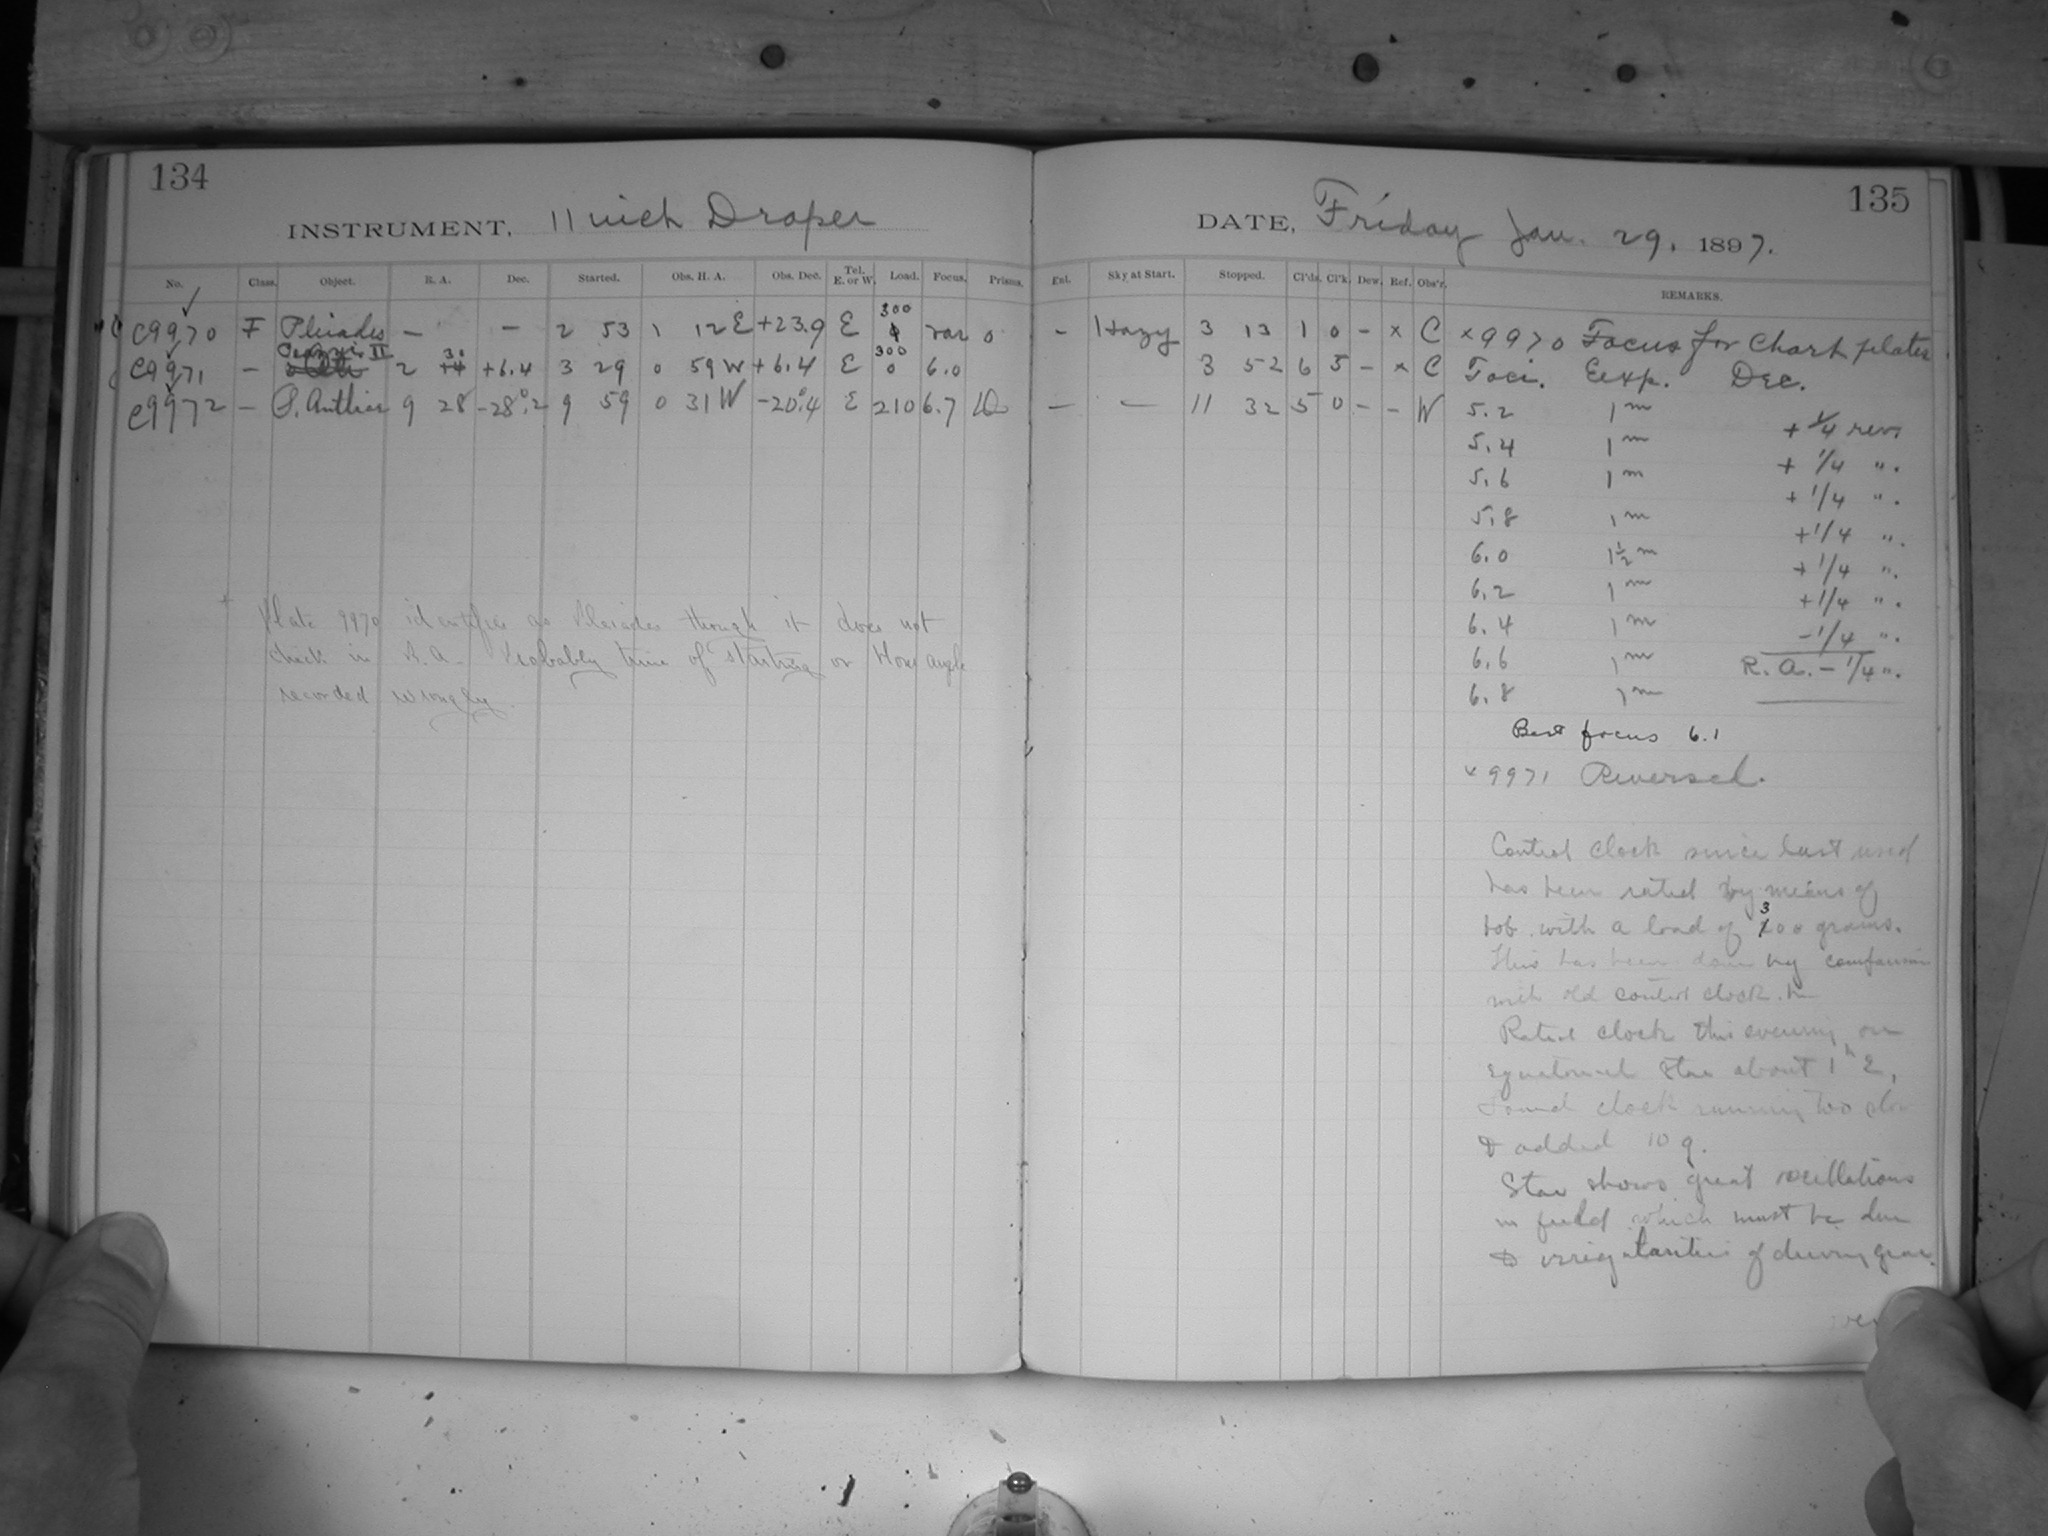 134
INSTRUMENT, 11 inch Draper
No. Class. Object. R. A. Dec. Started. Obs. H. A. Obs. Dec. Tel. E. or W. Load. Focus. Prisms.
C9970 F Pleiades — — 2 53 1 12 E +23.9 E 300 var 0
C9971 — II 2 30 +6.4 3 29 0 59 W +6.4 E 300 0 6.0
C9972 — P. Antliae 9 28 -28°.2 9 59 0 31 W -20°.4 E 210 6.7
Plate 9970 identifies as Pleiades though it does not
check in R.A. Probably time of starting or Hour angle
recorded wrongly.
135
DATE, Friday Jan. 29, 1897.
Ent. Sky at Start. Stopped. Cl'ds. Cl'k. Dew. Ref. Obs'r. REMARKS.
- Hazy 3 13 1 0 - x C x9970 Focus for Chart plates
3 52 6 5 - x C Foci. Exp. Dec.
— — 11 32 5 0 - - W 5.2 1 m + 1/4 rev.
5.4 1 m + 1/4 ".
5.6 1 m + 1/4 ".
5.8 1 m +1/4 ".
6.0 1½ m + 1/4 ".
6.2 1 m +1/4 ".
6.4 1 m -1/4 ".
6.6 1 m R. A. - 1/4 ".
6.8 1 m
Best focus 6.1
x 9971 Reversed.
Control clock since last used
has been rated by means of
bob with a load of 300 grams.
This has been done by comparison
with old control clock.
Rated clock this evening on
Equatorial star about 1 h E,
Found clock running too slow
& added 10 g.
Star shows great oscillations
in field which must be due
to irregularities of driving gear.